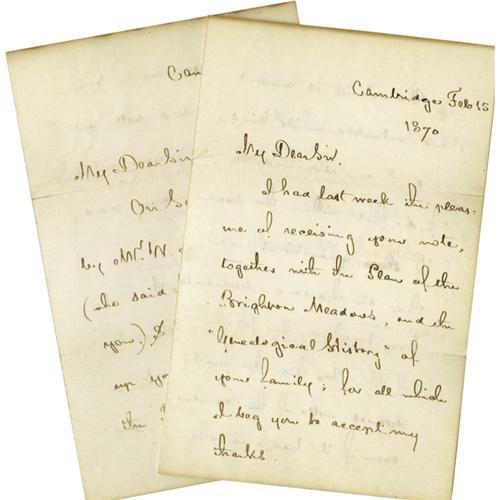 Cambridge Feb 15
1870
My Dear Sir,
I had last week the pleas=
ure of receiving your note,
together with the Plan of the
Brighton Meadows, and the
"Genealogical History" of
your family; for all which
I beg you to accept my
thanks.
Cam
My Dear Sir
On Sa
by Mr. W.
(who said
you.) &
up yo